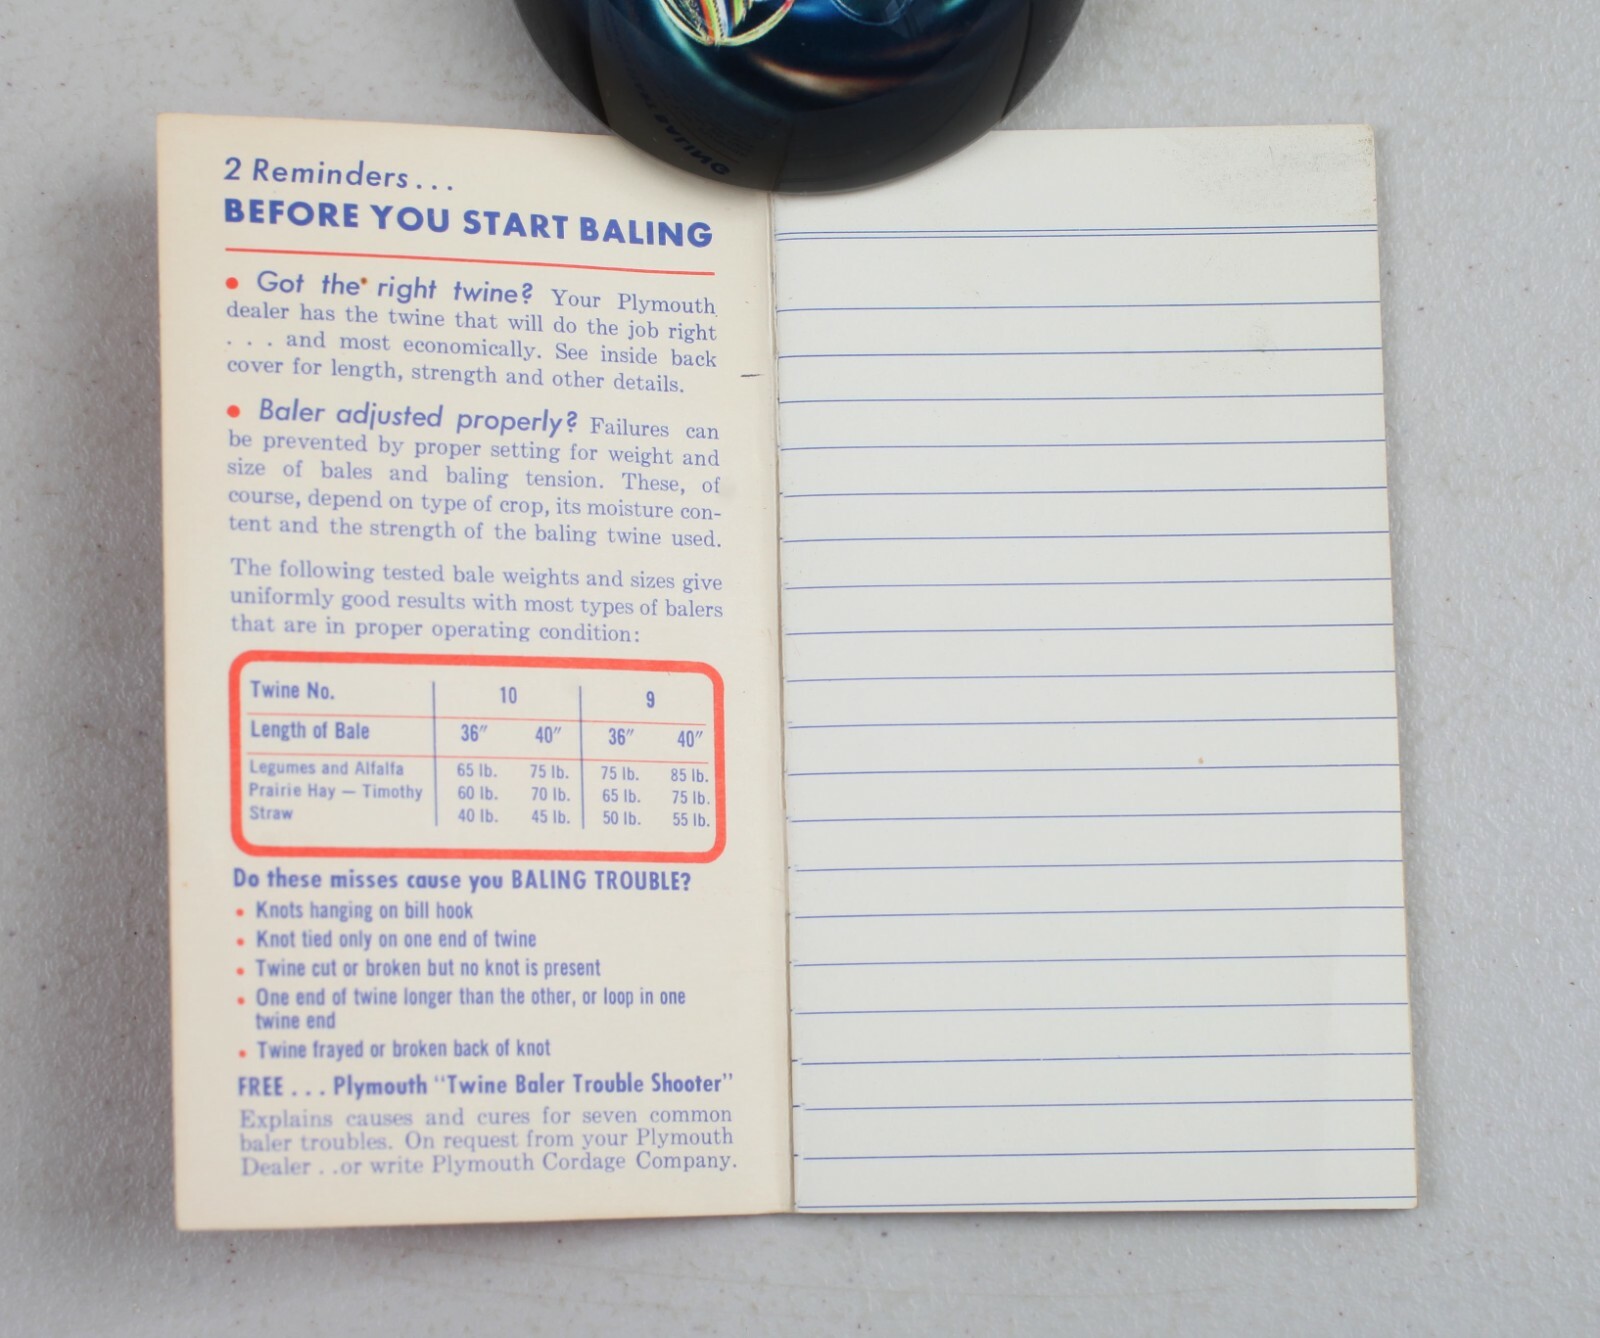 2 Reminders...
BEFORE YOU START BALING
• Got the right twine? Your Plymouth
dealer has the twine that will do the job right
. . . and most economically. See inside back
cover for length, strength and other details.
• Baler adjusted properly? Failures can
be prevented by proper setting for weight and
size of bales and baling tension. These, of
course, depend on type of crop, its moisture con-
tent and the strength of the baling twine used.
The following tested bale weights and sizes give
uniformly good results with most types of balers
that are in proper operating condition:
Twine No. 10 9
Length of Bale 36″ 40″ 36″ 40″
Legumes and Alfalfa 65 lb. 75 lb. 75 lb. 85 lb.
Prairie Hay — Timothy 60 lb. 70 lb. 65 lb. 75 lb.
Straw 40 lb. 45 lb. 50 lb. 55 lb.
Do these misses cause you BALING TROUBLE?
• Knots hanging on bill hook
• Knot tied only on one end of twine
• Twine cut or broken but no knot is present
• One end of twine longer than the other, or loop in one
twine end
• Twine frayed or broken back of knot
FREE . . . Plymouth "Twine Baler Trouble Shooter"
Explains causes and cures for seven common
baler troubles. On request from your Plymouth
Dealer . .or write Plymouth Cordage Company.